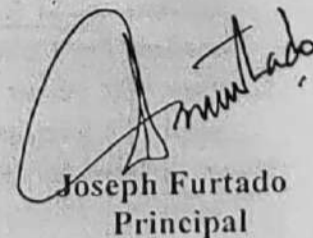 Joseph Furtado
Principal